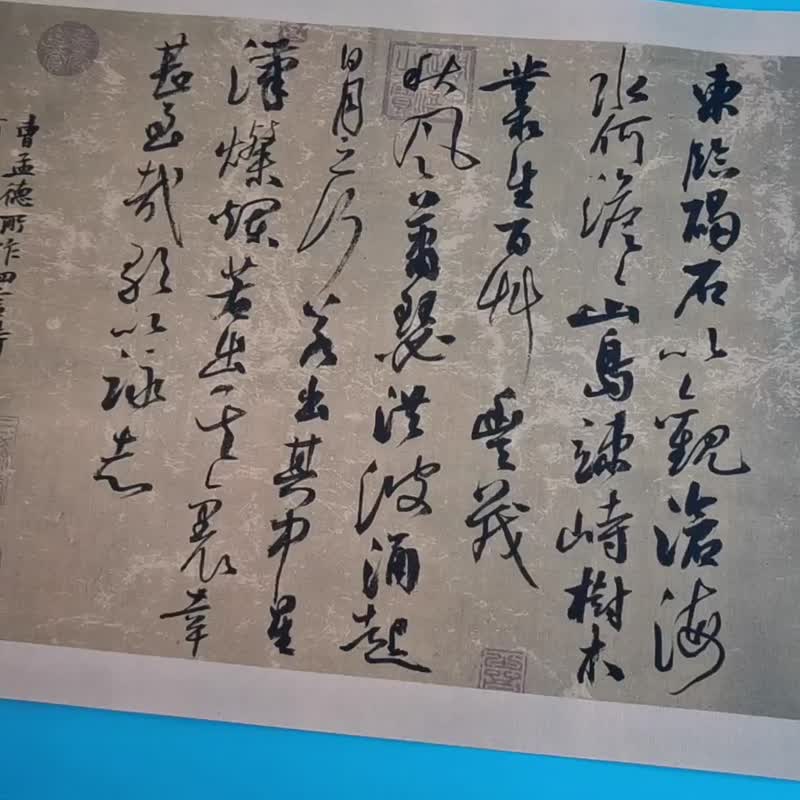 東臨碣石以觀滄海
水何澹々山島竦峙樹木
叢生百艸豐茂
秋風蕭瑟洪波涌起
日月之行若出其中星
漢燦爛若出其裏幸
甚至哉歌以詠志
曹孟德所作四言詩